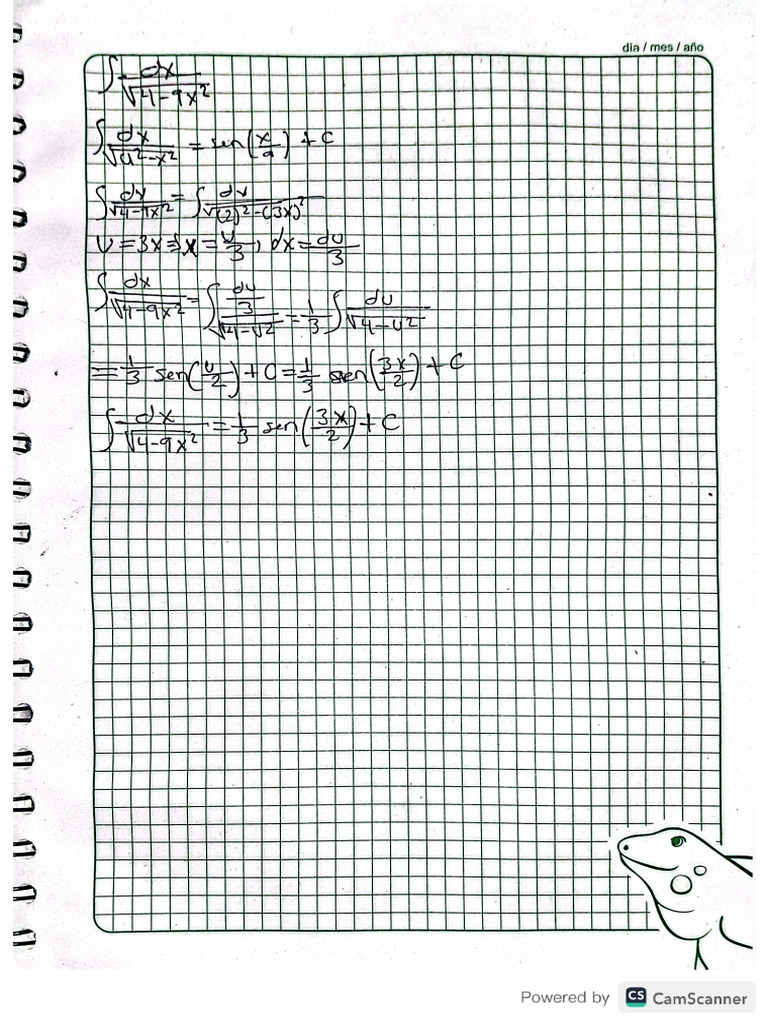 día / mes / año
∫ dx/√(4-9x²)
∫ dx/√(a²-x²) = sen(x/a) + C
∫ dx/√(4-9x²) = ∫ dx/√((2)²-(3x)²)
u = 3x ⇒ x = u/3, dx = du/3
∫ dx/√(4-9x²) = ∫ (du/3)/√(4-u²) = 1/3 ∫ du/√(4-u²)
= 1/3 sen(u/2) + C = 1/3 sen(3x/2) + C
∫ dx/√(4-9x²) = 1/3 sen(3x/2) + C
Powered by CS CamScanner